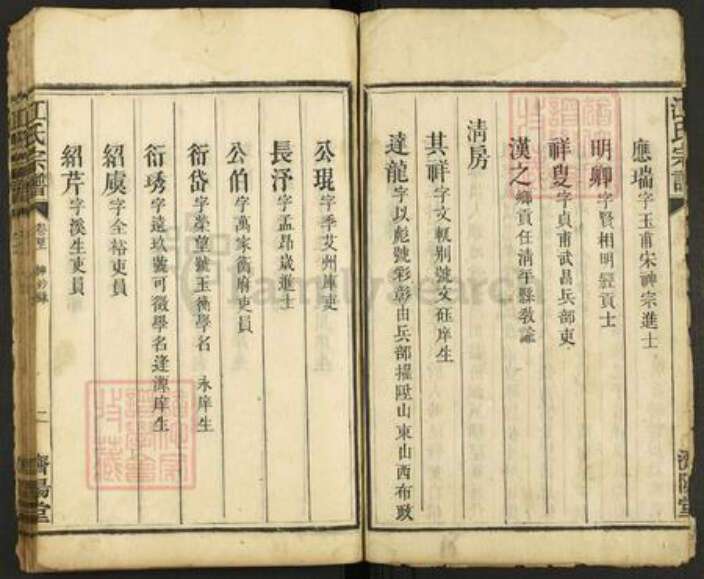 應瑞字玉甫宋神宗進士
明卿字賢相明經貢士
祥叟字貞甫武昌兵部吏
漢之鄉貢任清平縣敎諭
清房
其祥字文軏別號文鈺庠生
達龍字以彪號彩彰由兵部擢陞山東山西布政
公琨字季艾州庫吏
長浮字孟昂歲進士
公伯字萬家衛府吏員
衍岱字榮望號玉衡學名 永庠生
衍琇字遠玖號可徵學名逢源庠生
紹虞字全裕吏員
紹芹字漢生吏員
江氏宗譜
二
濟陽堂
FamilySearch